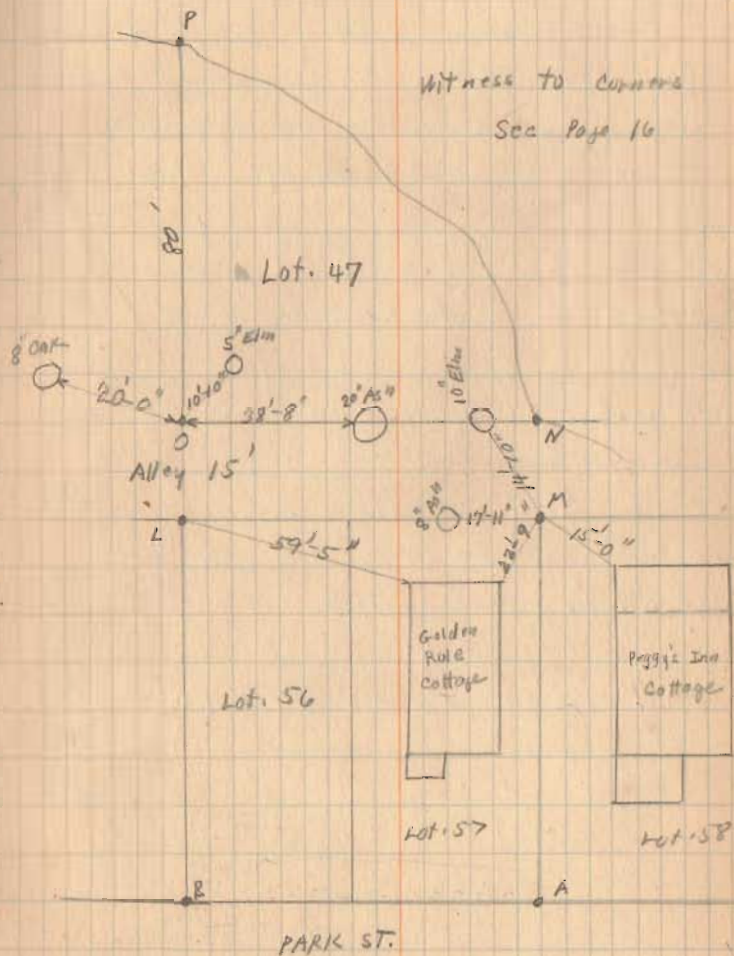 P
Witness to Corners
See Page 16
Lot. 47
8" Oak
5" Elm
20'-0"
10'-10"
38'-8"
20" Ash
10" Elm
O
N
Alley 15'
L
59'-5"
8" Ash
17'-11"
M
22'-9"
15'-0"
Golden
Rule
Cottage
Peggy's Inn
Cottage
Lot. 56
Lot. 57
Lot. 58
B
A
PARK ST.